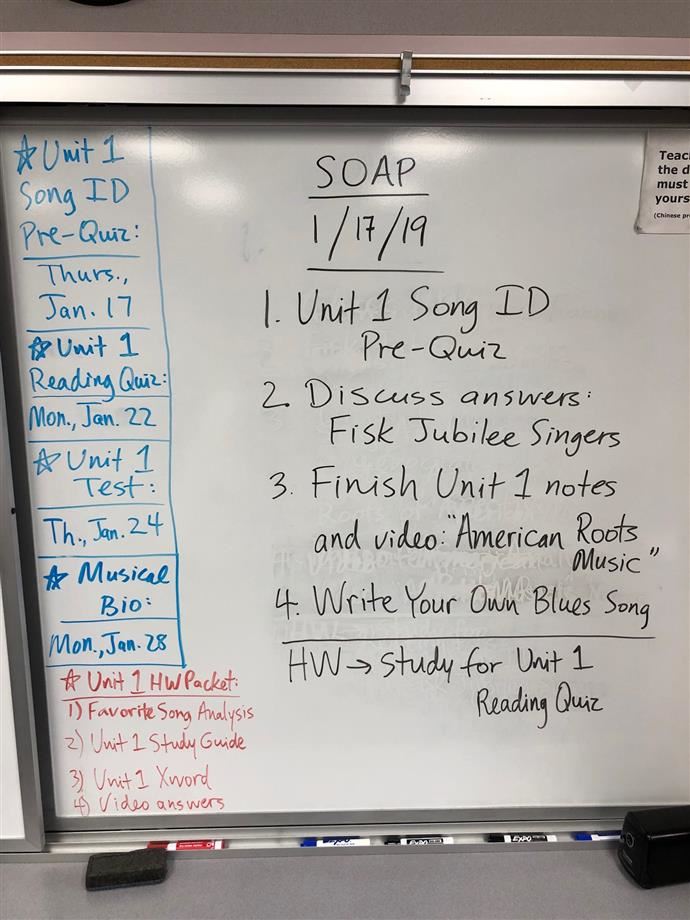 ☆ Unit 1
Song ID
Pre-Quiz:
Thurs.,
Jan. 17
☆ Unit 1
Reading Quiz:
Mon., Jan. 22
☆ Unit 1
Test:
Th., Jan. 24
☆ Musical
Bio:
Mon., Jan. 28
☆ Unit 1 HW Packet:
1) Favorite Song Analysis
2) Unit 1 Study Guide
3) Unit 1 Xword
4) Video answers
SOAP
1/17/19
1. Unit 1 Song ID
Pre-Quiz
2. Discuss answers:
Fisk Jubilee Singers
3. Finish Unit 1 notes
and video: "American Roots
Music"
4. Write Your Own Blues Song
HW → Study for Unit 1
Reading Quiz
the d
must
yours
(Chinese
EXPO
EXPO
EXPO
EXPO